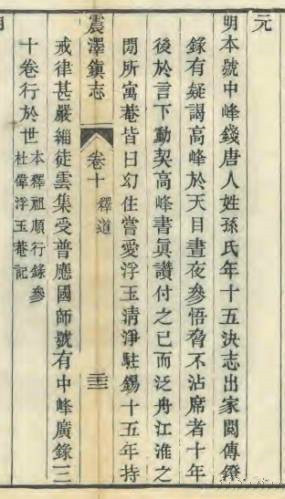 元
明本號中峰錢唐人姓孫氏年十五決志出家閱傳鐙
錄有疑謁高峰於天目晝夜參悟脅不沾席者十年
後於言下動契高峰書眞讚付之已而泛舟江淮之
閒所寓菴皆曰幻住嘗愛浮玉清淨駐錫十五年持
震澤鎮志 卷十 釋道
戒律甚嚴緇徒雲集受普應國師號有中峰廣錄三
十卷行於世 本釋祖順行錄參
杜偉浮玉菴記